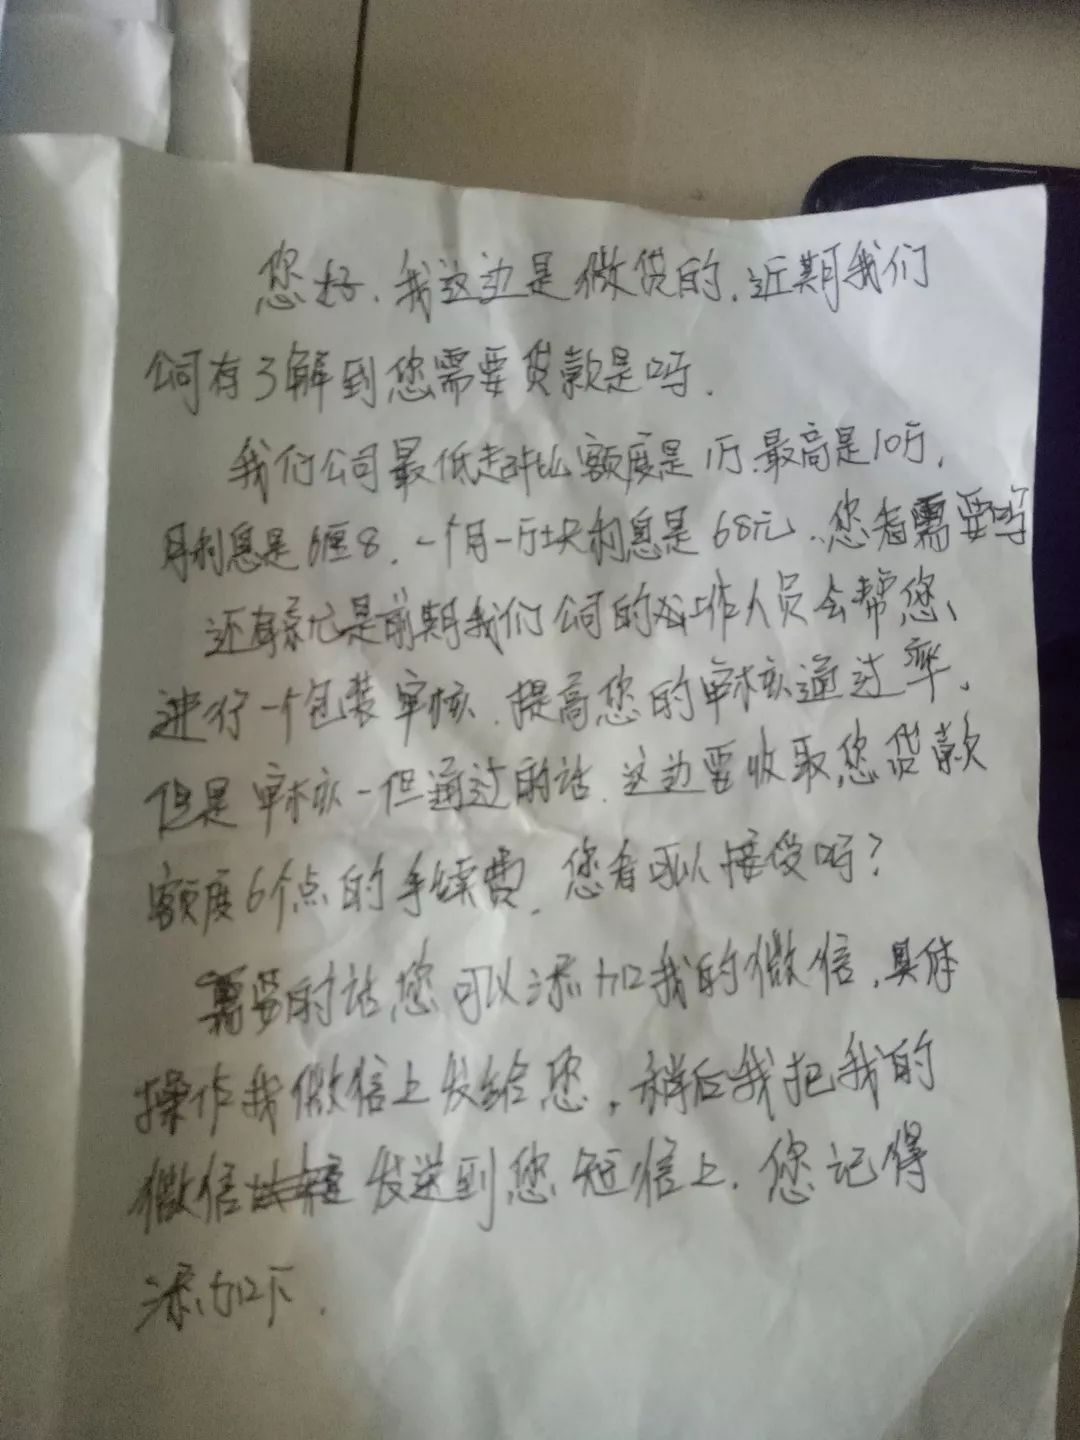 您好.我这边是微贷的.近期我们
公司有了解到您需要贷款是吗.
我们公司最低起批额度是1万.最高是10万.
月利息是6厘8.一个月一万块利息是68元.您看需要吗
还有就是前期我们公司的工作人员会帮您
进行一个包装审核.提高您的审核通过率.
但是审核一但通过的话.这边要收取您贷款
额度6个点的手续费.您看可以接受吗?
需要的话您可以添加我的微信.具体
操作我微信上发给您.稍后我把我的
微信发送到您短信上.您记得
添加下.